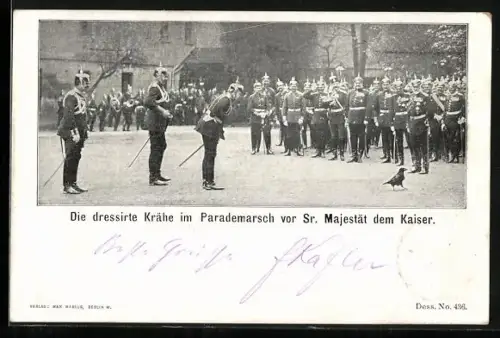 Die dressirte Krähe im Parademarsch vor Sr. Majestät dem Kaiser.
Beste Grüsse
VERLAG: MAX MARCUS, BERLIN W.
Dess. No. 436.